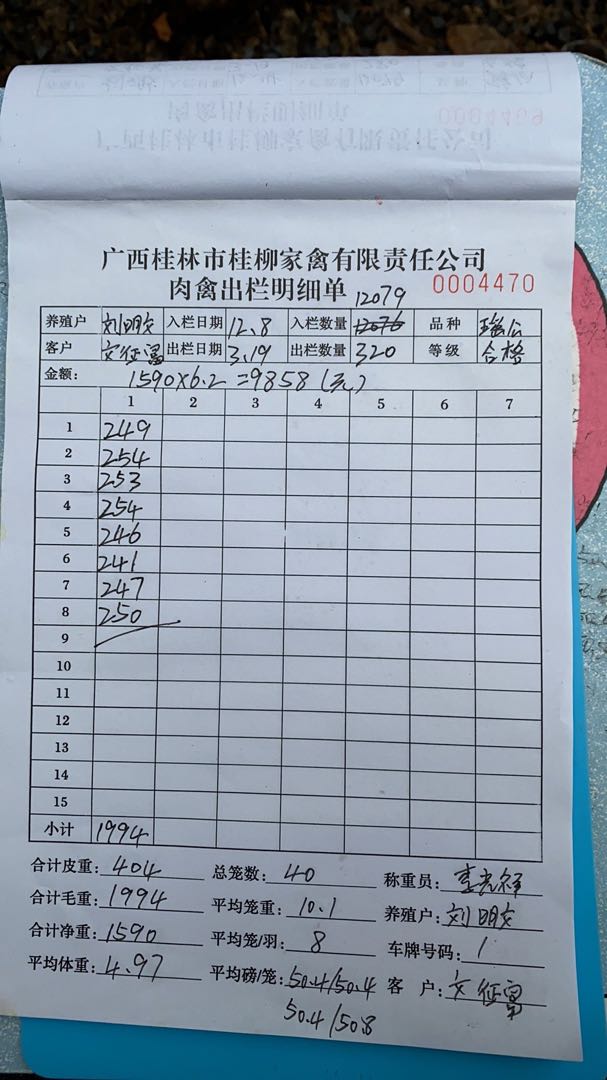 广西桂林市桂柳家禽有限责任公司
肉禽出栏明细单 12079 0004470
养殖户 刘明文 入栏日期 12.8 入栏数量 12076 品种 瑶公
客户 文征富 出栏日期 3.19 出栏数量 320 等级 合格
金额: 1590×6.2=9858(元)
1 2 3 4 5 6 7
1 249
2 254
3 253
4 254
5 246
6 241
7 247
8 250
9
10
11
12
13
14
15
小计 1994
合计皮重: 404 总笼数: 40 称重员: 李光祥
合计毛重: 1994 平均笼重: 10.1 养殖户: 刘明文
合计净重: 1590 平均笼/羽: 8 车牌号码: 1
平均体重: 4.97 平均磅/笼: 50.4/50.4 客 户: 文征富
50.4/50.8